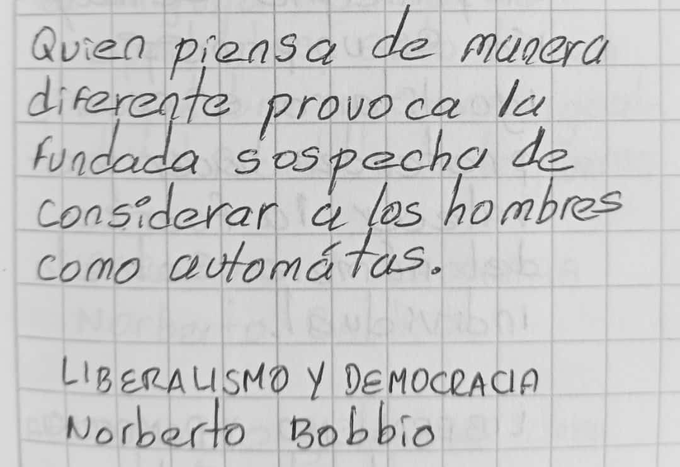 Quien piensa de manera
diferente provoca la
fundada sospecha de
considerar a los hombres
como automátas.
LIBERALISMO Y DEMOCRACIA
Norberto Bobbio